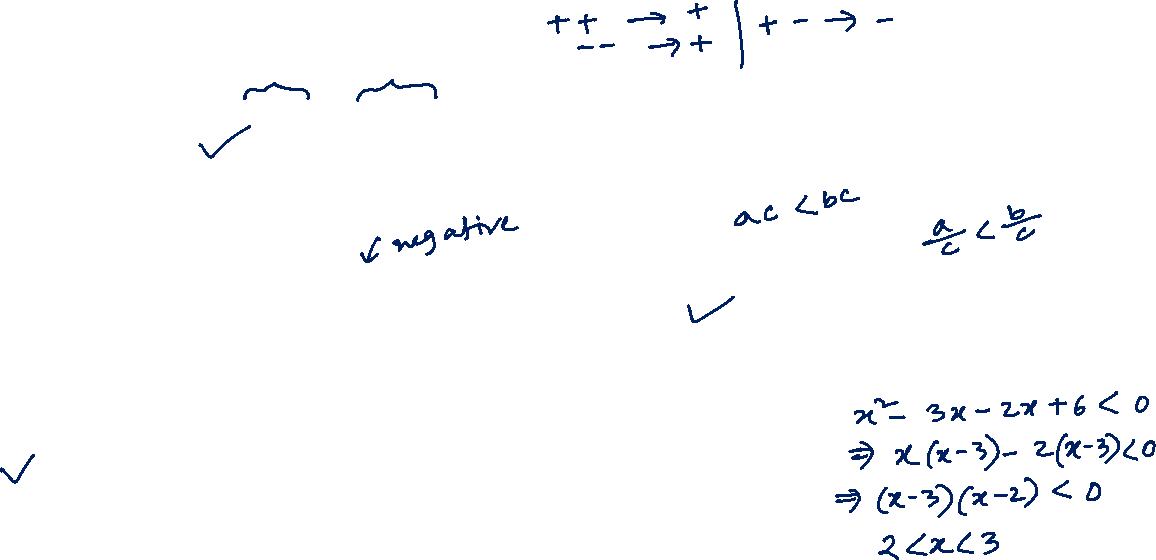 + + → + | + - → -
- - → +
✓
↙ negative
ac < bc
a/c < b/c
✓
x² - 3x - 2x + 6 < 0
⇒ x(x-3) - 2(x-3) < 0
✓
⇒ (x-3)(x-2) < 0
2 < x < 3